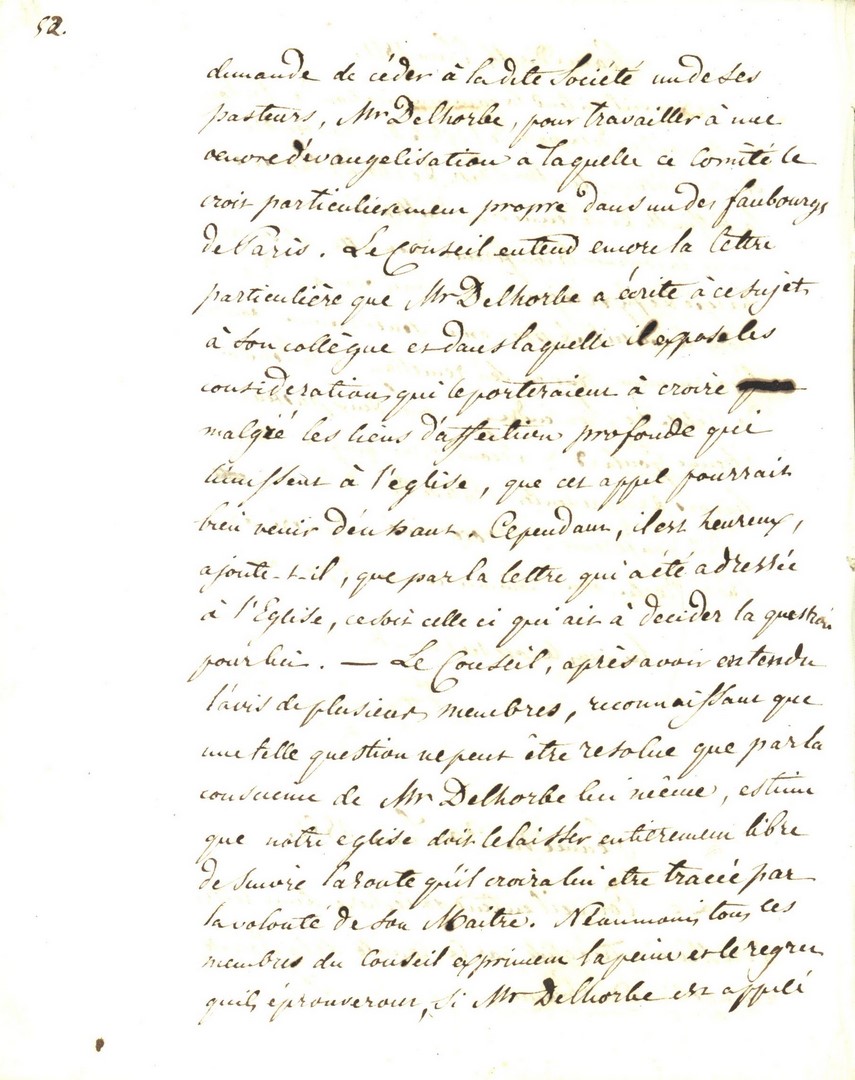 52.
demande de céder à la dite Société un de ses
pasteurs, Mr Delhorbe, pour travailler à une
oeuvre d'évangelisation a laquelle ce Comité le
croit particulierement propre dans un des faubourgs
de Paris. Le Conseil entend encore la lettre
particulière que Mr Delhorbe a écrite à ce sujet
à son collègue et dans laquelle il expose les
considerations qui le porteraient à croire
malgré les liens d'affection profonde qui
l'unissent à l'eglise, que cet appel pourrait
bien venir d'en haut. Cependant, il est heureux,
ajoute-t-il, que par la lettre qui a été adressée
à l'Eglise, ce soit celle ci qui ait à decider la question
pour lui. — Le Conseil, après avoir entendu
l'avis de plusieurs membres, reconnaissant que
une telle question ne peut être resolue que par la
conscience de Mr Delhorbe lui même, estime
que notre eglise doit le laisser entierement libre
de suivre la route qu'il croira lui etre tracée par
la volonté de son Maitre. Néanmoins tous les
membres du Conseil expriment la peine et le regret
qu'ils éprouveront, si Mr Delhorbe est appelé